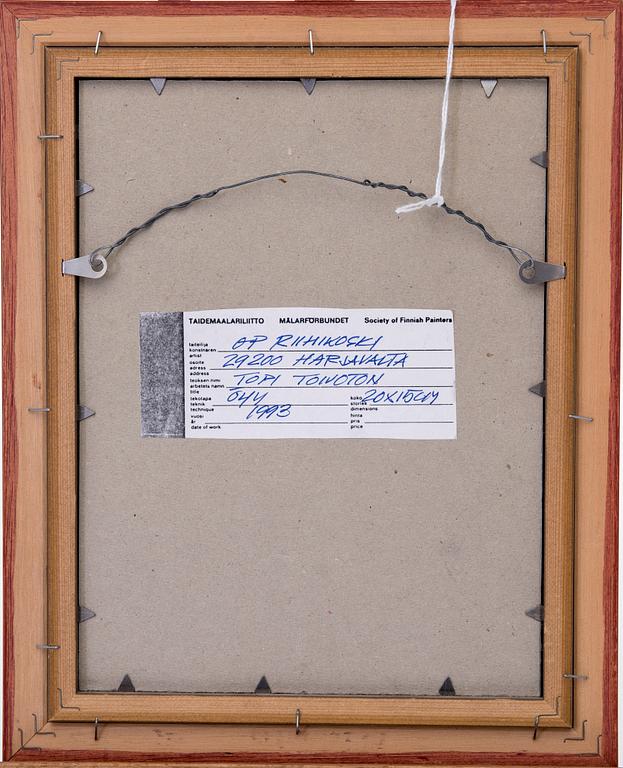 TAIDEMAALARILIITTO MÅLARFÖRBUNDET Society of Finnish Painters
taiteilija
konstnären OP RIIHIKOSKI
artist
osoite 29200 HARJAVALTA
adress
address
teoksen nimi TOPI TOIVOTON
arbetets namn
title
tekotapa ÖLJY koko 20X15CM
teknik storlek
technique dimensions
vuosi 1993 hinta
år pris
date of work price